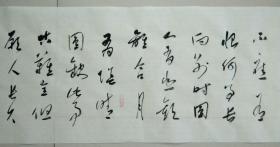 不應有
恨何事長
向別時圓
人有悲歡
離合月
有陰晴
圓缺此事
古難全但
願人長久